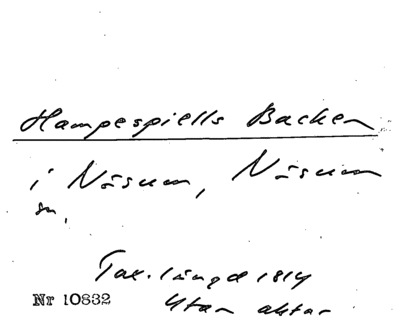 Hampespiells Backen
i Näsum, Näsum
sn.
Tax.längd 1814
Nr 10832
utan aktar